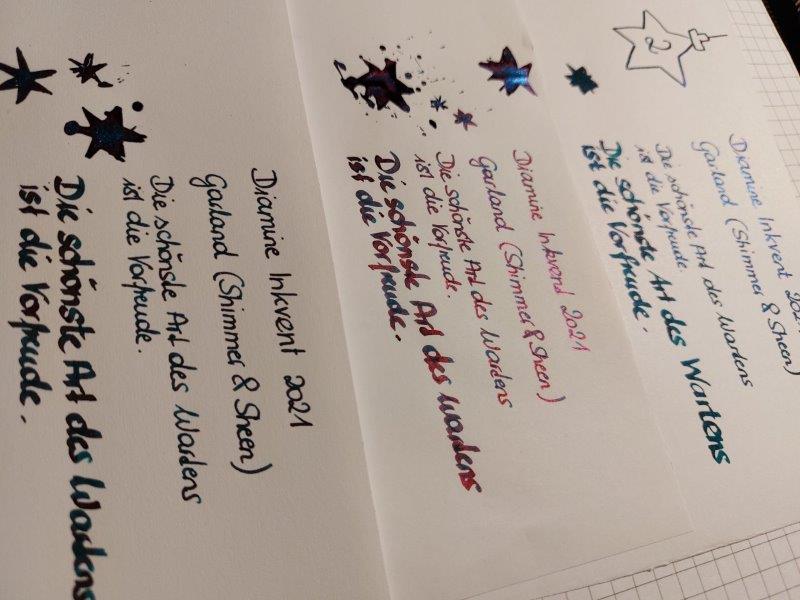 2
Diamine Inkvent 202
Garland (Shimmer & Sheen)
Die schönste Art des Wartens
ist die Vorfreude.
Die schönste Art des Wartens
ist die Vorfreude.
Diamine Inkvent 2021
Garland (Shimmer & Sheen)
Die schönste Art des Wartens
ist die Vorfreude.
Die schönste Art des Wartens
ist die Vorfreude.
Diamine Inkvent 2021
Garland (Shimmer & Sheen)
Die schönste Art des Wartens
ist die Vorfreude.
Die schönste Art des Wartens
ist die Vorfreude.